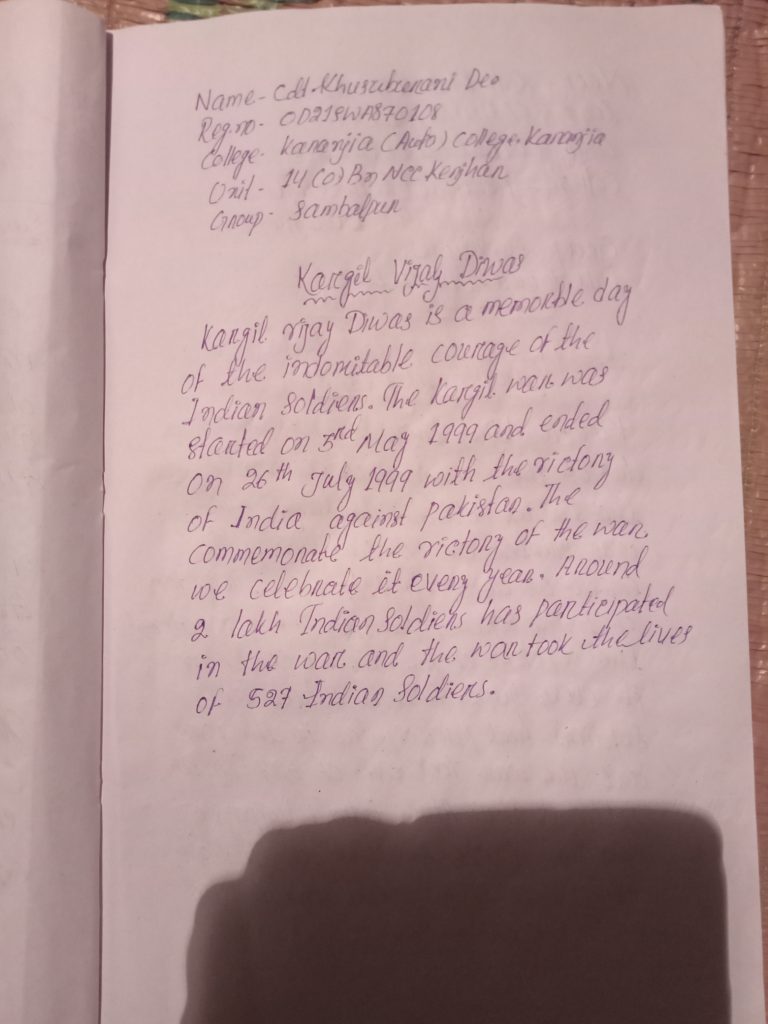 Name - Cdt. Khusubrenani Deo
Reg.no - OD21SWA870108
College - Karanjia (Auto) College, Karanjia
Unit - 14 (O) Bn NCC Kenjhar
Group - Sambalpur
Kargil Vijay Diwas
Kargil vijay Diwas is a memorble day
of the indomitable courage of the
Indian Soldiers. The Kargil war was
started on 3rd May 1999 and ended
on 26th July 1999 with the victory
of India against pakistan. The
commemorate the victory of the war
we celebrate it every year. Around
2 lakh Indian Soldiers has participated
in the war and the war took the lives
of 527 Indian Soldiers.